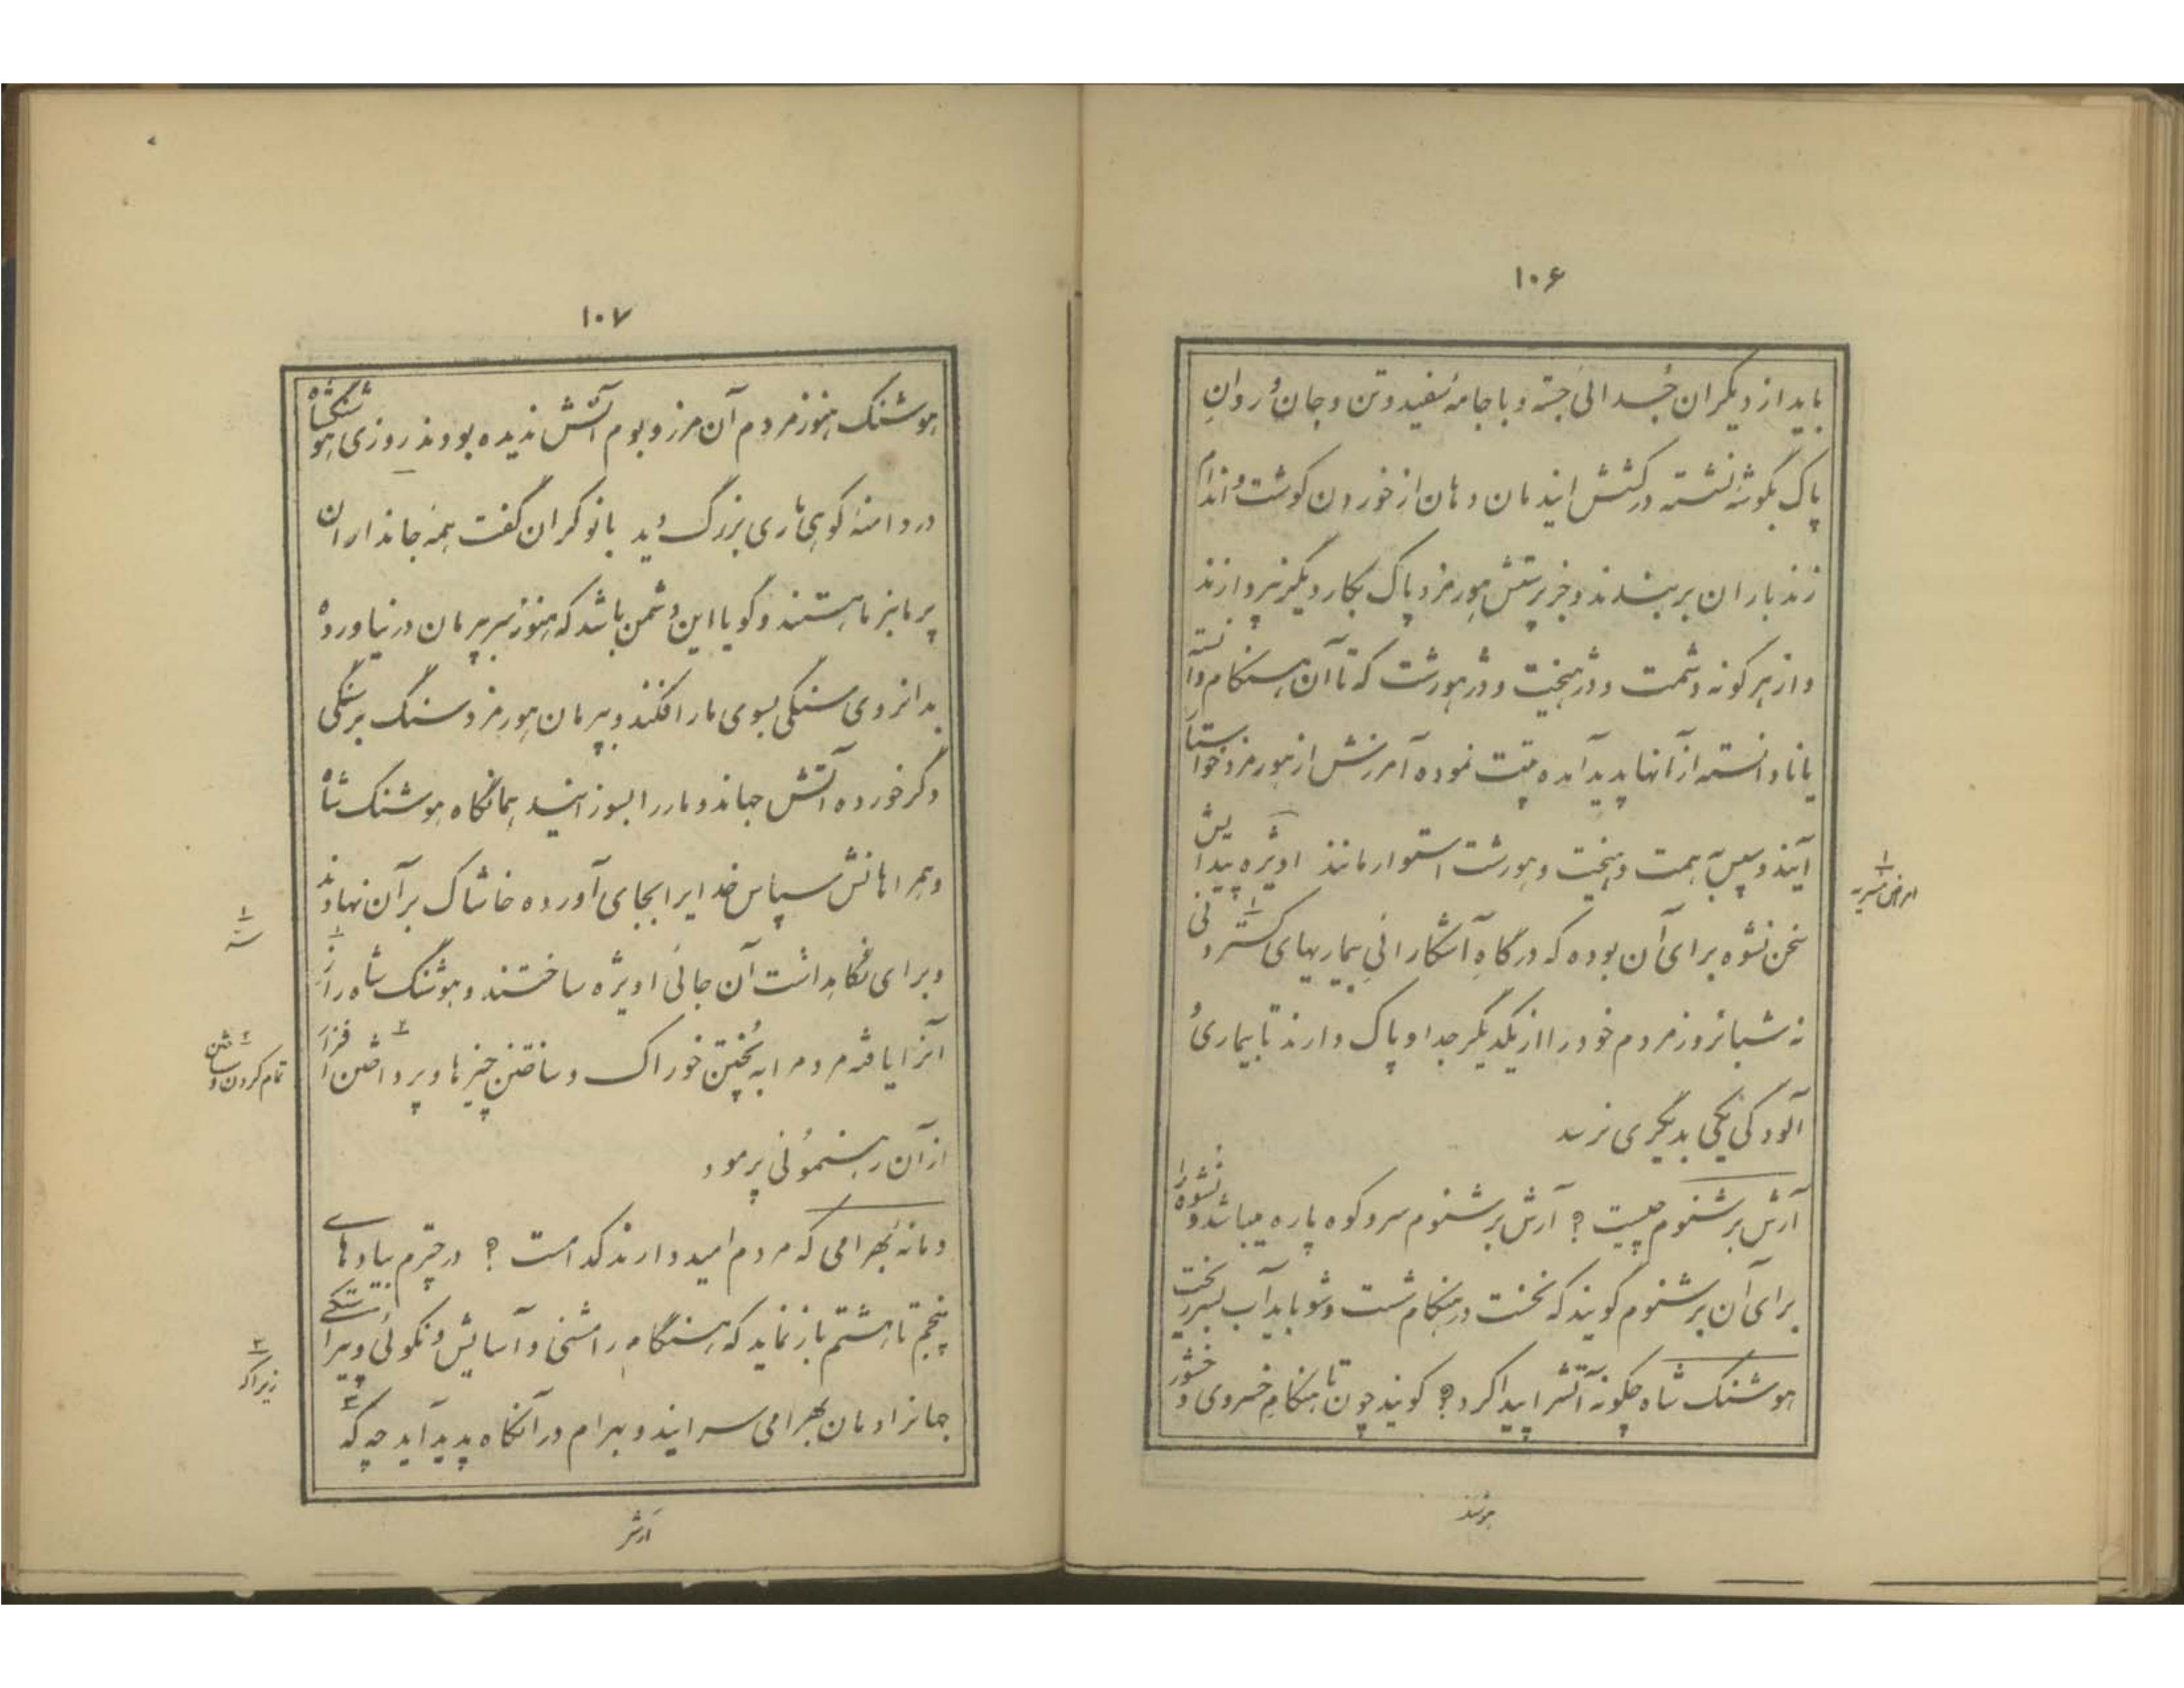 ۱۰۶
باید از دیگران جُدائی جسته و با جامهٔ سفید و تن و جان و روانِ
پاک بگوشهٔ نشسته در کشش ایند مان و هان از خوردن گوشت و اندام
زند باران بر بسندند و جز پرستش هورمزد پاک بکار دیگر نپردازند
و از هر گونه دشمت و دژهیخت و دژهورشت که تا آن هنگام دانسته
یا نادانسته از آنها پدید آمده پتت نموده آمرزش از هورمزد خواستا
آیند و سپس به همت و هیخت و هورشت استوار مانند اویژه پیدایش
سخن نشوه برای آن بوده که در گاهِ آشکارائیِ بیماریهای گستردنی ۱
نه شبانروز مردم خود را از یکدیگر جدا و پاک دارند تا بیماری و
آلودگی یکی بدیگری نرسد
آرش برشنوم چیست؟ آرش برشنوم سر و کوه پاره میباشد و نشوه را
برای آن برشنوم گویند که نخست در هنگام شست و شو باید آب بسر ریخت
هوشنگ شاه چگونه آتش را پیدا کرد؟ گویند چون تا هنگامِ خسروی و خشور
۱
امراض مسریه
هوشنـ
۱۰۷
هوشنگ هنوز مردم آن مرز و بوم آتش ندیده بودند روزی هوشنگ شاه
در دامنهٔ کوهی ماری بزرگ دید با نوکران گفت همه جانداران
پرمانبر ما هستند و گویا این دشمن باشد که هنوز سر بپرمان در نیاورده
بدانروی سنگی بسوی مار افکند و بپرمان هورمزد سنگ بر سنگی
دگر خورده آتش جهاند و مار را بسوزانید همانگاه هوشنگ شاه
و همراهانش سپاس خدایرا بجای آورده خاشاک بر آن نهادند
و برای نگاهداشت آن جائی اویژه ساختند و هوشنگ شاه راز ۱
آنرا یافته مردم را به پُختن خوراک و ساختن چیزها و پرداختن ۲ افزار
از آن رهنمُونی پرمود
دمانه بُهرامی که مردم امید دارند کدامست؟ در چترم بیادهای
پنجم تا هشتم باز نماید که هنگام رامشنی و آسایش و نکوئی و پیراستگی
جهانرا دمان بهرامی سرایند و بهرام در آنگاه پدید آید چه که ۳
۱
سر
۲
تمام کردن و ساختن
۳
زیراکه
ارش